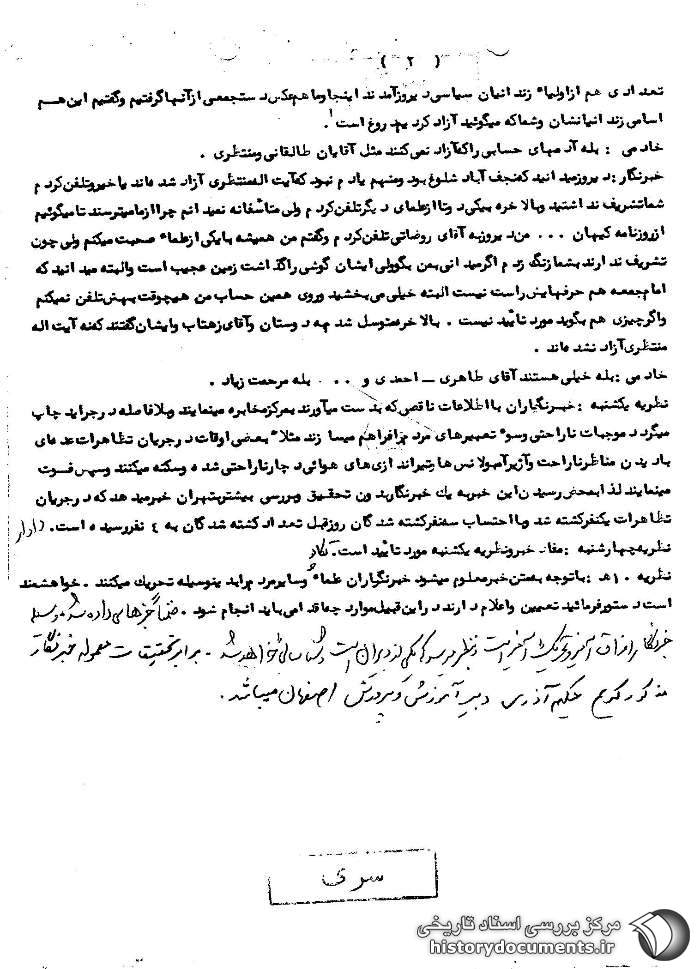 ( ۲ )
تعدادی هم از اولیاء زندانیان سیاسی دیروز آمدند اینجا و ما هم عکس دستجمعی از آنها گرفتیم و گفتیم این هم
اسامی زندانیانشان و شما که میگوئید آزاد کردید دروغ است .
خادمی : بله آدمهای حسابی را که آزاد نمی کنند مثل آقایان طالقانی و منتظری .
خبرنگار : دیروز میدانید که نجف آباد شلوغ بود و منهم یادم نبود که آیت اله منتظری آزاد شده اند یا خیر و تلفن کردم
شما تشریف نداشتید و بالاخره بیکی دوتا از علمای دیگر تلفن کردم ولی متأسفانه نمیدانم چرا از ما میترسند تا میگوئیم
از روزنامه کیهان ... من دیروز به آقای روضاتی تلفن کردم و گفتم من همیشه با یکی از علماء صحبت میکنم ولی چون
تشریف ندارند بشما زنگ زدم اگر میدانی بمن بگو ولی ایشان گوشی را گذاشت زمین عجیب است والبته میدانید که
امام جمعه هم حرفهایش راست نیست البته خیلی می بخشید و روی همین حساب من هیچوقت بهش تلفن نمیکنم
و اگر چیزی هم بگوید مورد تأیید نیست . بالاخره متوسل شدم به دوستان و آقای زهتاب و ایشان گفتند که نه آیت اله
منتظری آزاد نشده اند .
خادمی : بله خیلی هستند آقای طاهری ـ احمدی و ... بله مرحمت زیاد .
نظریه یکشنبه : خبرنگاران با اطلاعات ناقص که بدست میآورند بمرکز مخابره مینمایند و بلافاصله در جراید چاپ
میگردد موجبات ناراحتی و سوء تعبیرهای مردم را فراهم میسازند مثلاً بعضی اوقات در جریان تظاهرات عده ای
با دیدن مناظر ناراحت و آژیر آمبولانس ها و تیراندازی های هوائی دچار ناراحتی شده و سکته میکنند و سپس فوت
مینمایند لذا بمحض رسیدن این خبر به یک خبرنگار بدون تحقیق و بررسی بیشتر بتهران خبر میدهد که در جریان
تظاهرات یکنفر کشته شد و با احتساب سه نفر کشته شدگان روز قبل تعداد کشته شدگان به ٤ نفر رسیده است .
نظریه چهارشنبه : مفاد خبر و نظریه یکشنبه مورد تأیید است .
نظریه ۱۰ ه‍ : با توجه به متن خبر معلوم میشود خبرنگاران علماء و سایر مردم را بدینوسیله تحریک میکنند . خواهشمند
است دستور فرمائید تعیین و اعلام دارند در این قبیل موارد چه اقدامی باید انجام شود . ضمناً خبرهای داده شده توسط
خبرنگار اغراق آمیز و تحریک آمیز است و بنظر میرسد که یکی از دبیران است و شناسائی خواهد شد . برابر تحقیقات معموله خبرنگار
مذکور کریم حکیم آذری دبیر آموزش و پرورش اصفهان میباشد .
سری
مرکز بررسی اسناد تاریخی
historydocuments.ir